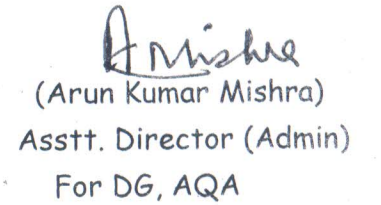 AMishra
(Arun Kumar Mishra)
Asstt. Director (Admin)
For DG, AQA